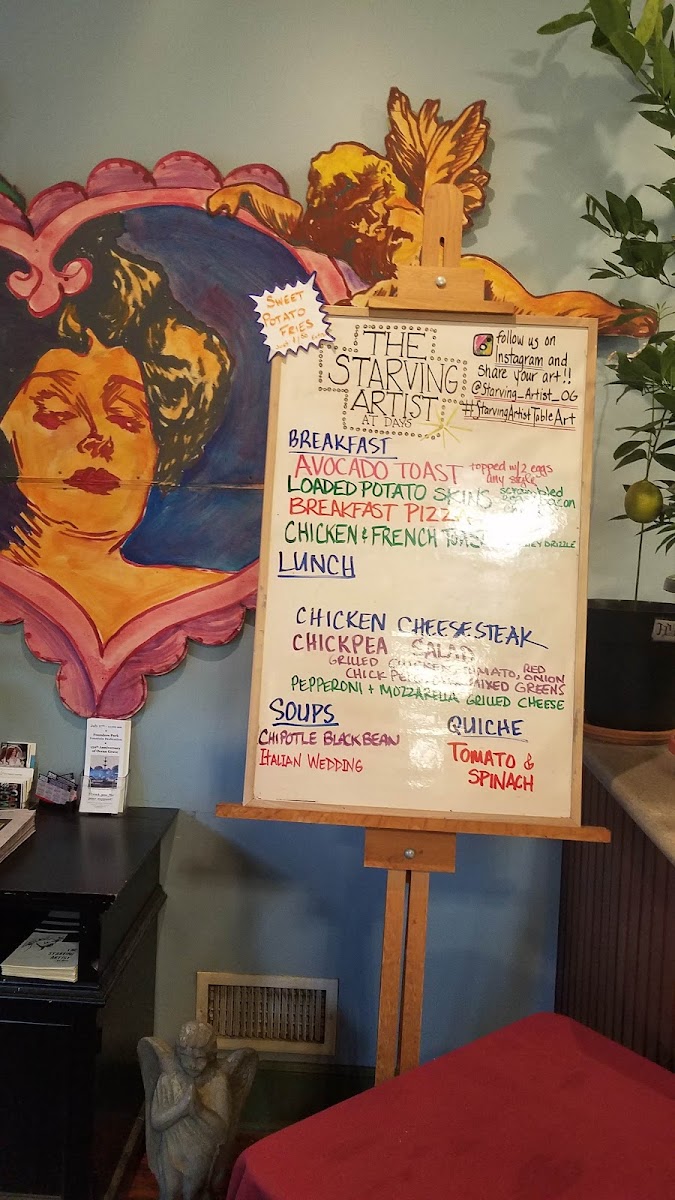 SWEET
POTATO
FRIES
THE
STARVING
ARTIST
AT DAYS
follow us on
Instagram and
share your art!!
@Starving_Artist_OG
#StarvingArtistTableArt
BREAKFAST
AVOCADO TOAST topped w/2 eggs
any style
LOADED POTATO SKINS scrambled
bacon
BREAKFAST
CHICKEN & FRENCH DRIZZLE
LUNCH
CHICKEN CHEESESTEAK
CHICKPEA SALAD
GRILLED CHICKEN, TOMATO, RED
ONION
MIXED GREENS
PEPPERONI + MOZZARELLA GRILLED CHEESE
SOUPS
CHIPOTLE BLACKBEAN
ITALIAN WEDDING
QUICHE
TOMATO &
SPINACH
STARVING
ARTIST